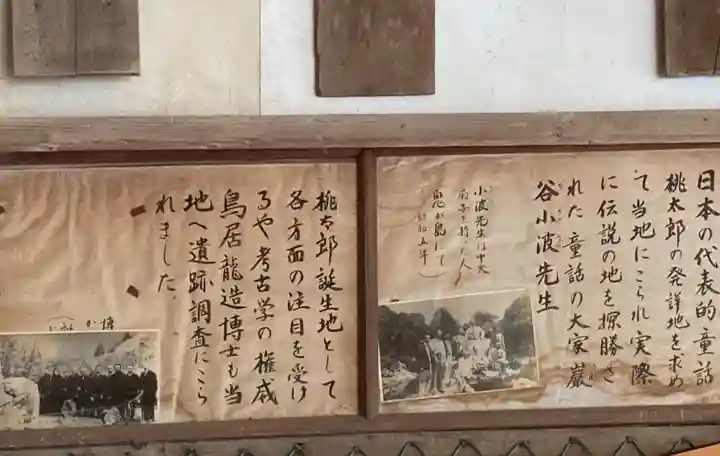 日本の代表的童話
桃太郎の発詳地を求め
て当地にこられ実際
に伝説の地を探勝さ
れた童話の大家巌
谷小波先生
小波先生は中央
扇子を持った人
鬼が島にて
昭和五年
桃太郎誕生地として
各方面の注目を受け
るや考古学の権威
鳥居龍造博士も当
地へ遺跡調査にこら
れました.